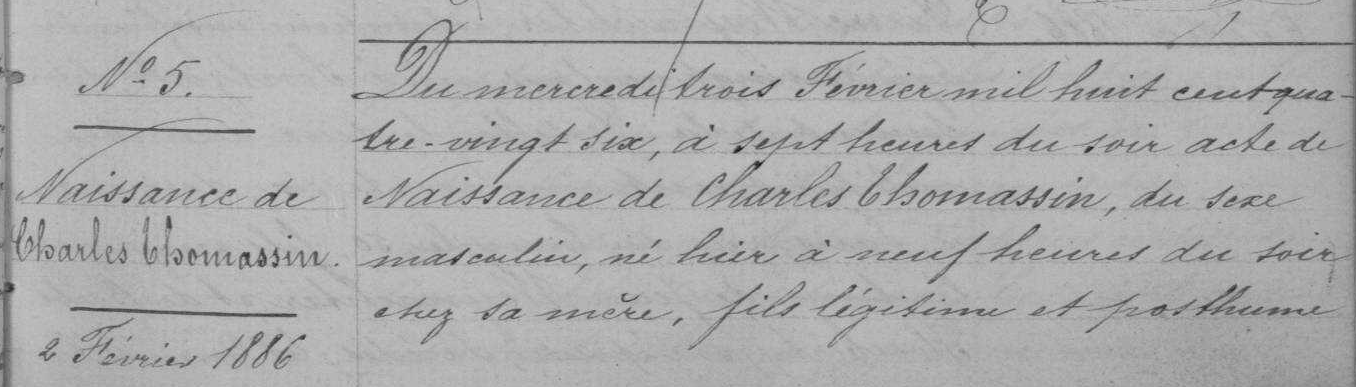 Nº 5.
Naissance de
Charles Thomassin.
2 Février 1886
Du mercredi trois Février mil huit cent qua-
tre-vingt six, à sept heures du soir acte de
Naissance de Charles Thomassin, du sexe
masculin, né hier à neuf heures du soir
chez sa mère, fils légitime et posthume